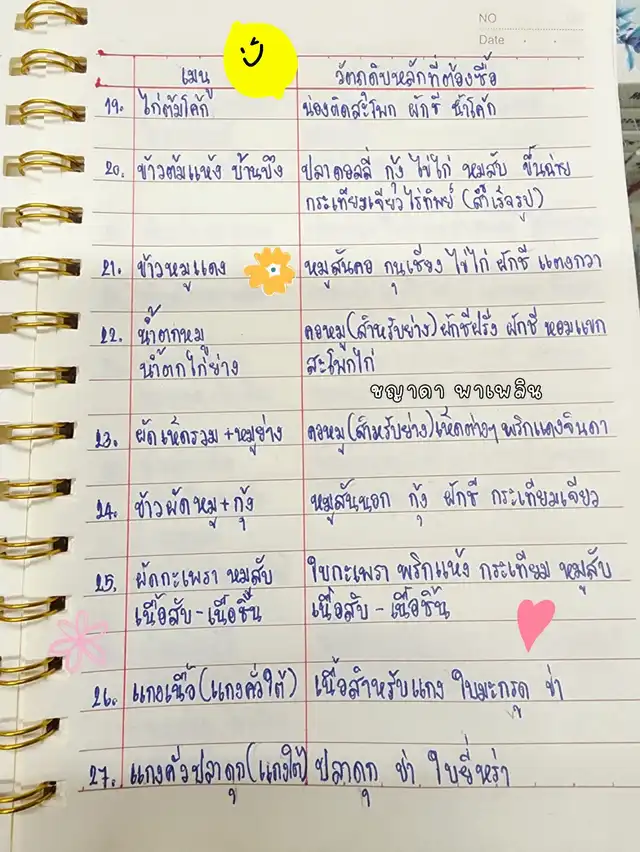 NO
Date
เมนู วัตถุดิบหลักที่ต้องซื้อ
19. ไก่ต้มโค้ก น่องติดสะโพก ผักชี น้ำโค้ก
20. ข้าวต้มแห้ง บ้านบึง ปลาดอลลี่ กุ้ง ไข่ไก่ หมูสับ ขึ้นฉ่าย
กระเทียมเจียวไร่ทิพย์ (สำเร็จรูป)
21. ข้าวหมูแดง หมูสันคอ กุนเชียง ไข่ไก่ ผักชี แตงกวา
22. น้ำตกหมู คอหมู(สำหรับย่าง) ผักชีฝรั่ง ผักชี หอมแขก
น้ำตกไก่ย่าง สะโพกไก่
ชญาดา พาเพลิน
23. ผัดเห็ดรวม+หมูย่าง คอหมู(สำหรับย่าง) เห็ดต่างๆ พริกแดงจินดา
24. ข้าวผัดหมู+กุ้ง หมูสันนอก กุ้ง ผักชี กระเทียมเจียว
25. ผัดกะเพรา หมูสับ ใบกะเพรา พริกแห้ง กระเทียม หมูสับ
เนื้อสับ-เนื้อชิ้น เนื้อสับ - เนื้อชิ้น
26. แกงเนื้อ(แกงคั่วใต้) เนื้อสำหรับแกง ใบมะกรูด ข่า
27. แกงคั่วปลาดุก(แกงใต้) ปลาดุก ข่า ใบยี่หร่า